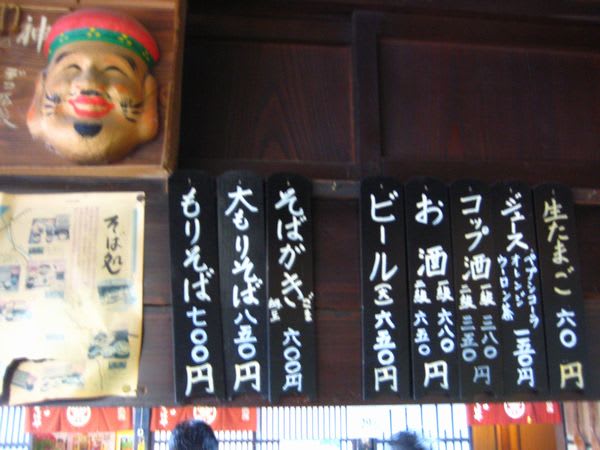 神
そば処
もりそば 七〇〇円
大もりそば 八五〇円
そばがき ごま 納豆 六〇〇円
ビール(大) 六五〇円
お酒 一級 六八〇 二級 六五〇 円
コップ酒 一級 三八〇 二級 三五〇 円
ジュース ペプシコーラ オーレンジ ウーロン茶 一五〇円
生たまご 六〇円